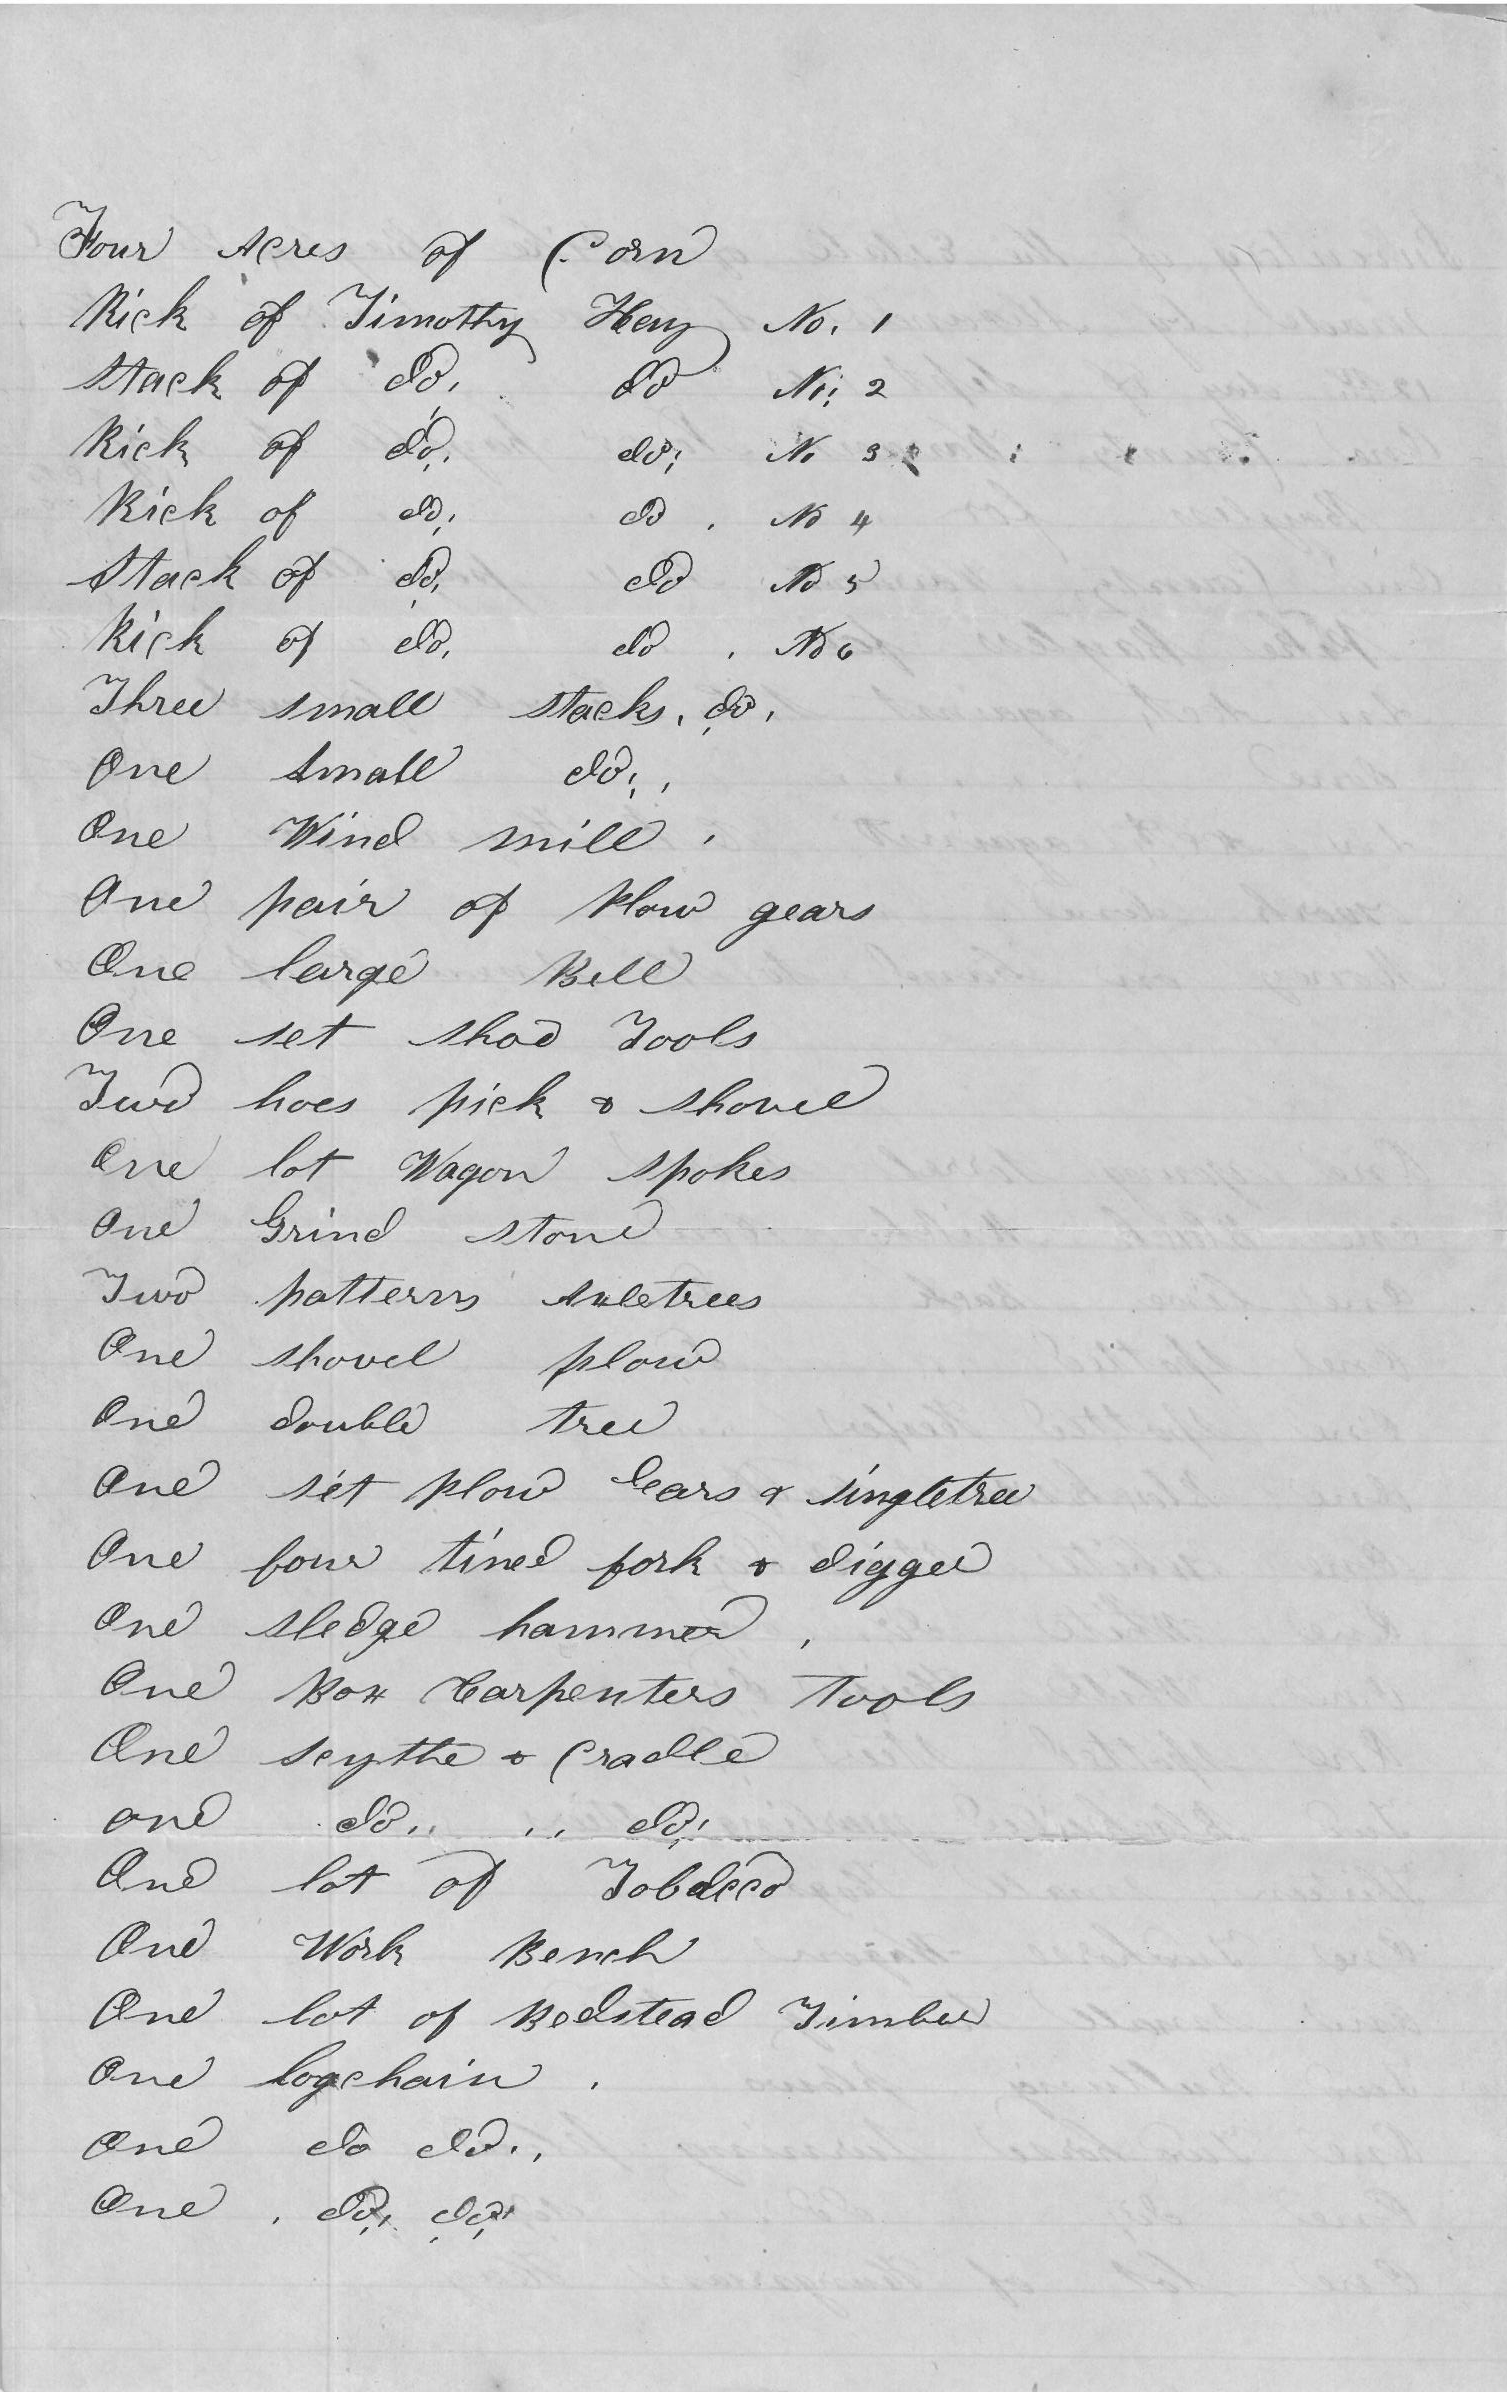 Four Acres of Corn
Rick of Timothy Hay No. 1
Stack of do. do No. 2
Rick of do. do; No 3
Rick of do; do . No 4
Stack of do, do No 5
Rick of do, do . No 6
Three small stacks, do,
One small do,,
One Wind mill ,
One pair of Plow gears
One large Bell
One set shod Tools
Two hoes pick & shovel
One lot Wagon spokes
One Grind stone
Two patterns Axletrees
One shovel plow
One double tree
One set Plow Gears & singletree
One four tined fork & digger
One sledge hammer ,
One Box Carpenters Tools
One scythe & Cradle
one do,, ,, do,
One lot of Tobacco
One Work Bench
One lot of Bedstead Timber
One logchain .
One do do.,
One . do, do,